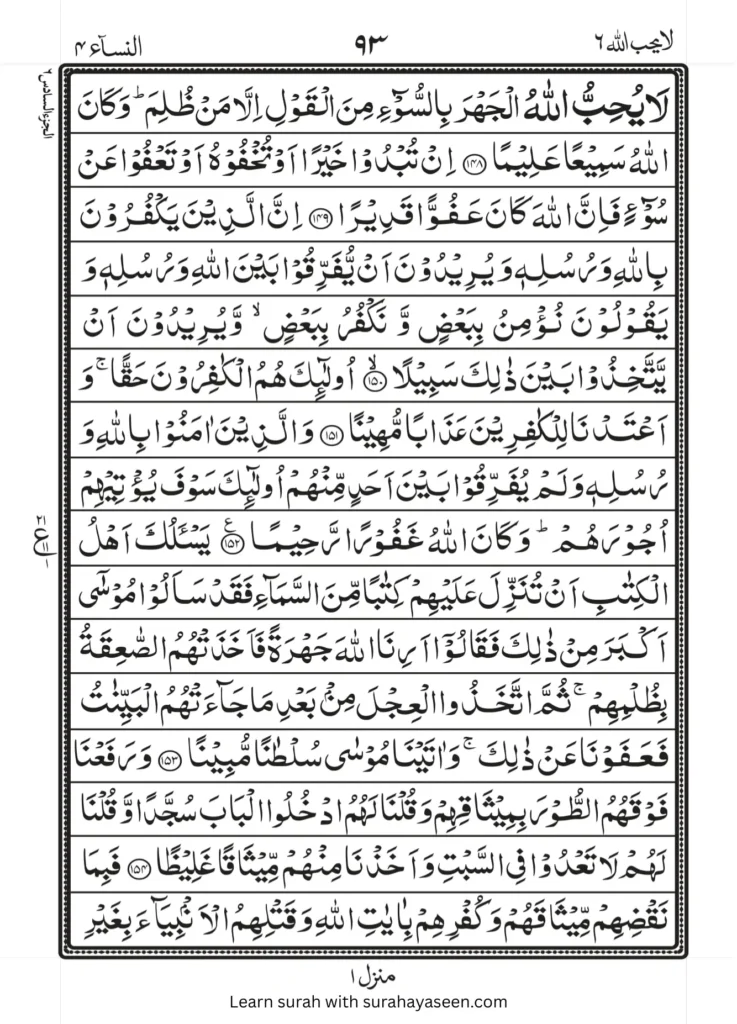 لا يحب الله ٦
٩٣
النسآء ٤
الجزء السادس ٦
لَا يُحِبُّ اللّٰهُ الْجَهْرَ بِالسُّوْٓءِ مِنَ الْقَوْلِ اِلَّا مَنْ ظُلِمَ ؕ وَ كَانَ
اللّٰهُ سَمِيْعًا عَلِيْمًا ﴿۱۴۸﴾ اِنْ تُبْدُوْا خَيْرًا اَوْ تُخْفُوْهُ اَوْ تَعْفُوْا عَنْ
سُوْٓءٍ فَاِنَّ اللّٰهَ كَانَ عَفُوًّا قَدِيْرًا ﴿۱۴۹﴾ اِنَّ الَّذِيْنَ يَكْفُرُوْنَ
بِاللّٰهِ وَ رُسُلِهٖ وَ يُرِيْدُوْنَ اَنْ يُّفَرِّقُوْا بَيْنَ اللّٰهِ وَ رُسُلِهٖ وَ
يَقُوْلُوْنَ نُؤْمِنُ بِبَعْضٍ وَّ نَكْفُرُ بِبَعْضٍ ۙ وَّ يُرِيْدُوْنَ اَنْ
يَّتَّخِذُوْا بَيْنَ ذٰلِكَ سَبِيْلًا ۙ﴿۱۵۰﴾ اُولٰٓئِكَ هُمُ الْكٰفِرُوْنَ حَقًّا ۚ وَ
اَعْتَدْنَا لِلْكٰفِرِيْنَ عَذَابًا مُّهِيْنًا ﴿۱۵۱﴾ وَ الَّذِيْنَ اٰمَنُوْا بِاللّٰهِ وَ
رُسُلِهٖ وَ لَمْ يُفَرِّقُوْا بَيْنَ اَحَدٍ مِّنْهُمْ اُولٰٓئِكَ سَوْفَ يُؤْتِيْهِمْ
اُجُوْرَهُمْ ؕ وَ كَانَ اللّٰهُ غَفُوْرًا رَّحِيْمًا ﴿۱۵۲﴾ يَسْـَٔلُكَ اَهْلُ
الْكِتٰبِ اَنْ تُنَزِّلَ عَلَيْهِمْ كِتٰبًا مِّنَ السَّمَآءِ فَقَدْ سَاَلُوْا مُوْسٰٓى
اَكْبَرَ مِنْ ذٰلِكَ فَقَالُوْٓا اَرِنَا اللّٰهَ جَهْرَةً فَاَخَذَتْهُمُ الصّٰعِقَةُ
بِظُلْمِهِمْ ۚ ثُمَّ اتَّخَذُوا الْعِجْلَ مِنْۢ بَعْدِ مَا جَآءَتْهُمُ الْبَيِّنٰتُ
فَعَفَوْنَا عَنْ ذٰلِكَ ۚ وَ اٰتَيْنَا مُوْسٰى سُلْطٰنًا مُّبِيْنًا ﴿۱۵۳﴾ وَ رَفَعْنَا
فَوْقَهُمُ الطُّوْرَ بِمِيْثَاقِهِمْ وَ قُلْنَا لَهُمُ ادْخُلُوا الْبَابَ سُجَّدًا وَّ قُلْنَا
لَهُمْ لَا تَعْدُوْا فِى السَّبْتِ وَ اَخَذْنَا مِنْهُمْ مِّيْثَاقًا غَلِيْظًا ﴿۱۵۴﴾ فَبِمَا
نَقْضِهِمْ مِّيْثَاقَهُمْ وَ كُفْرِهِمْ بِاٰيٰتِ اللّٰهِ وَ قَتْلِهِمُ الْاَنْۢبِيَآءَ بِغَيْرِ
منزل ١
Learn surah with surahayaseen.com